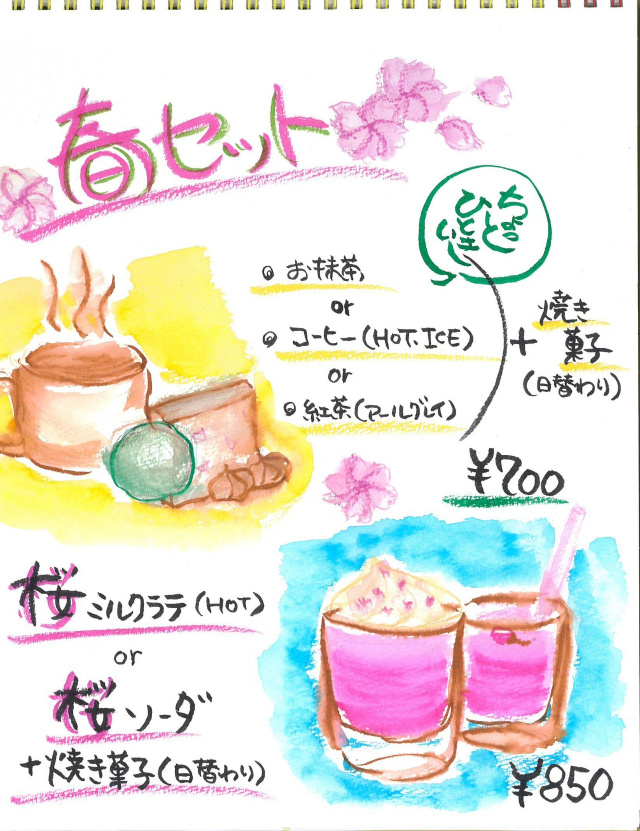 春セット
ちょっと
ひといき
お抹茶
or
コーヒー(HOT.ICE)
or
紅茶(アールグレイ)
+ 焼き
菓子
(日替わり)
¥700
桜ミルクラテ(HOT)
or
桜ソーダ
+焼き菓子(日替わり)
¥850